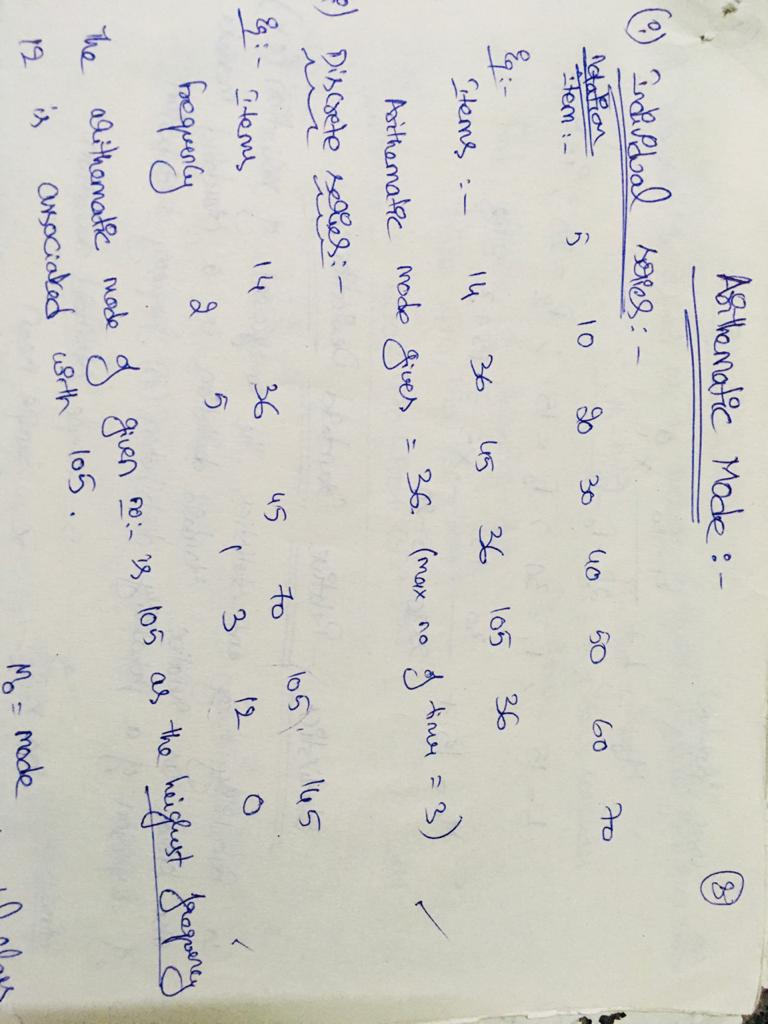 Arithamatic Mode :-
8
(i) Individual series :-
Notation
item :- 5 10 20 30 40 50 60 70
Eg:-
Items :- 14 36 45 36 105 36
Arithamatic mode gives = 36. (max no of time = 3)
Discrete series :-
Eg:- Items 14 36 45 70 105 145
frequenly 2 5 1 3 12 0
The arithamatic mode of given no:- is 105 as the heighst frequency
12 is associated with 105.
Mo = mode